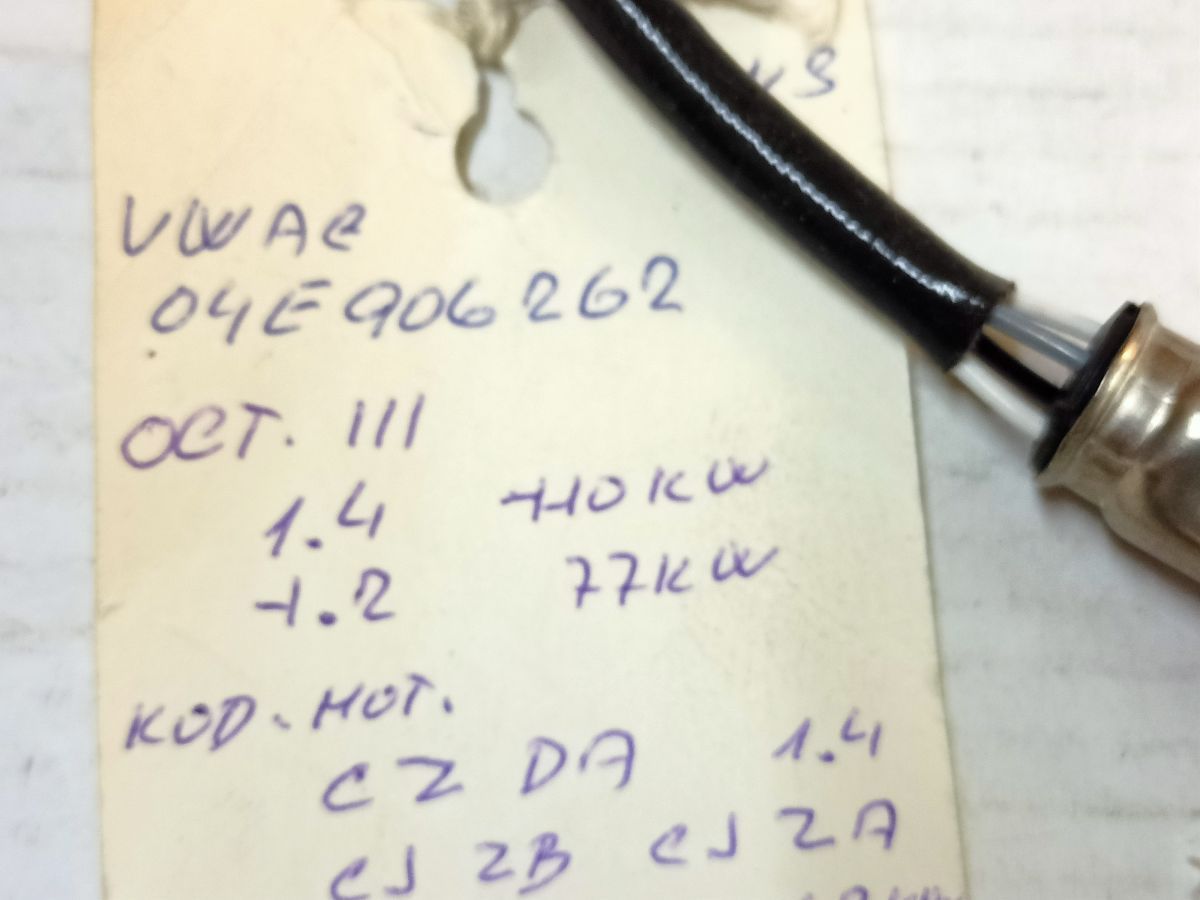 VW AG
04E906262
OCT. III
1.4 110 KW
1.2 77KW
KOD. MOT.
CZ DA 1.4
CJ ZB CJ ZA